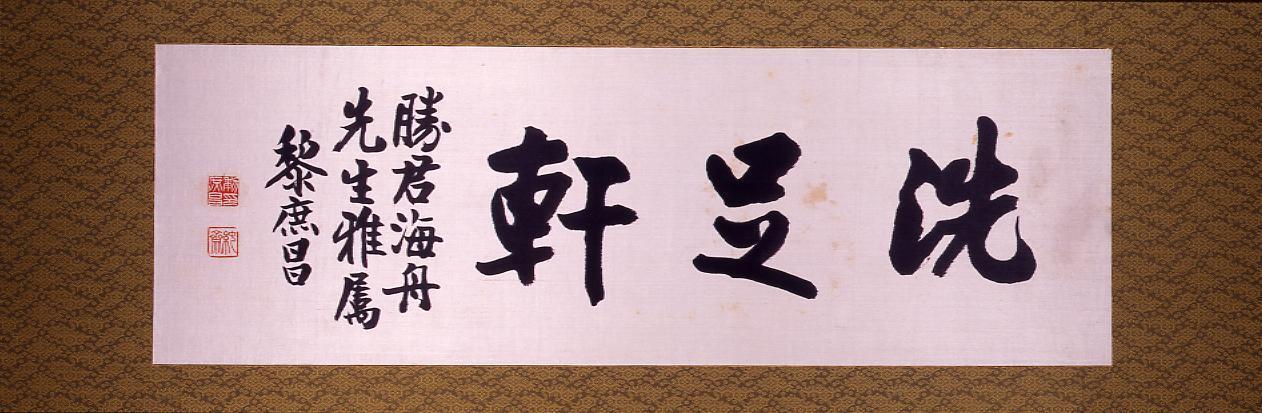 洗足軒
勝君海舟
先生雅属
黎庶昌